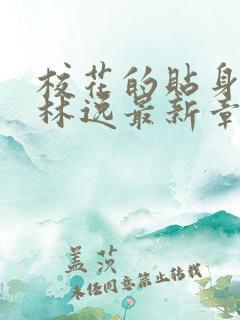 校花的贴身
林逸最新章
盖茨
未经同意禁止转载